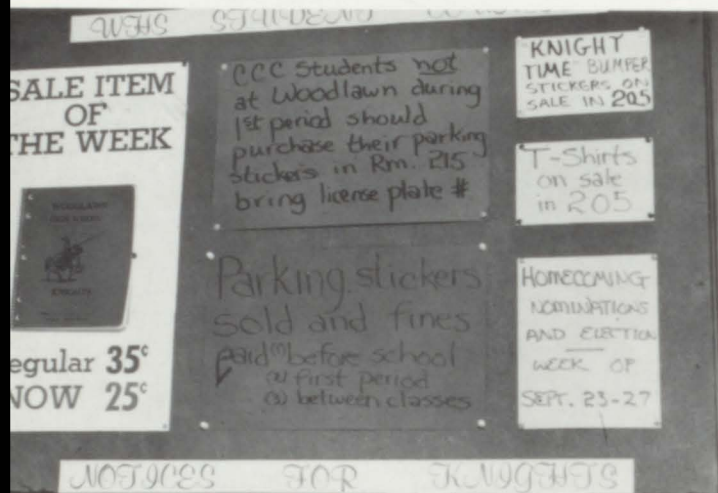 WHS STUDENT
SALE ITEM
OF
THE WEEK
WOODLAWN
KNIGHTS
egular 35¢
NOW 25¢
CCC Students not
at Woodlawn during
1st period should
purchase their parking
stickers in Rm. 215
bring license plate #
Parking stickers
sold and fines
paid (1) before school
(2) first period
(3) between classes
KNIGHT
TIME BUMPER
STICKERS ON
SALE IN 205
T-Shirts
on sale
in 205
HOMECOMING
NOMINATIONS
AND ELECTION
WEEK OF
SEPT. 23-27
NOTICES FOR KNIGHTS